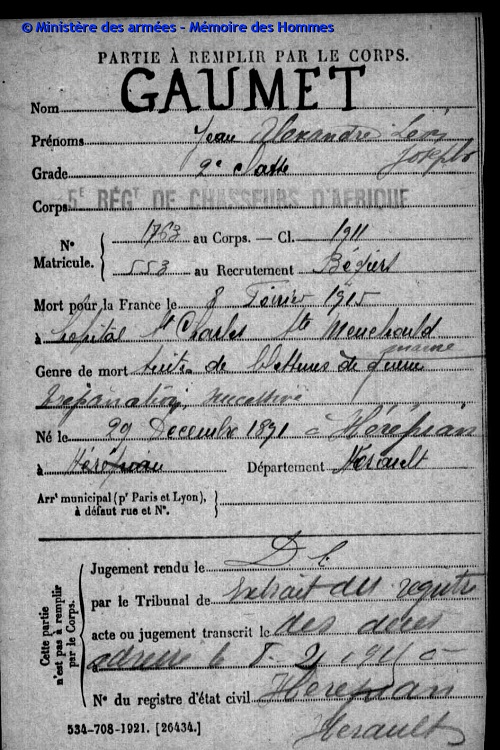 © Ministère des armées - Mémoire des Hommes
PARTIE À REMPLIR PAR LE CORPS.
Nom GAUMET
Prénoms Jean Alexandre Léon
Joseph
Grade 2e classe
Corps 5E RÉGT DE CHASSEURS D'AFRIQUE
N° Matricule. { 1763 au Corps. — Cl. 1911
553 au Recrutement Béziers
Mort pour la France le 8 Février 1915
à hôpital St Charles Ste Menehould
marne
Genre de mort suites de blessures de guerre
trépanation successive
Né le 29 Décembre 1891 à Hérépian
à Hérépian Département Hérault
Arrt municipal (pr Paris et Lyon),
à défaut rue et N°.
Cette partie
n'est pas à remplir
par le Corps.
Jugement rendu le D. C.
par le Tribunal de Extrait des registres
acte ou jugement transcrit le des décès
adressé le 1915 à
N° du registre d'état civil Hérépian
Hérault
534-708-1921. [26434.]